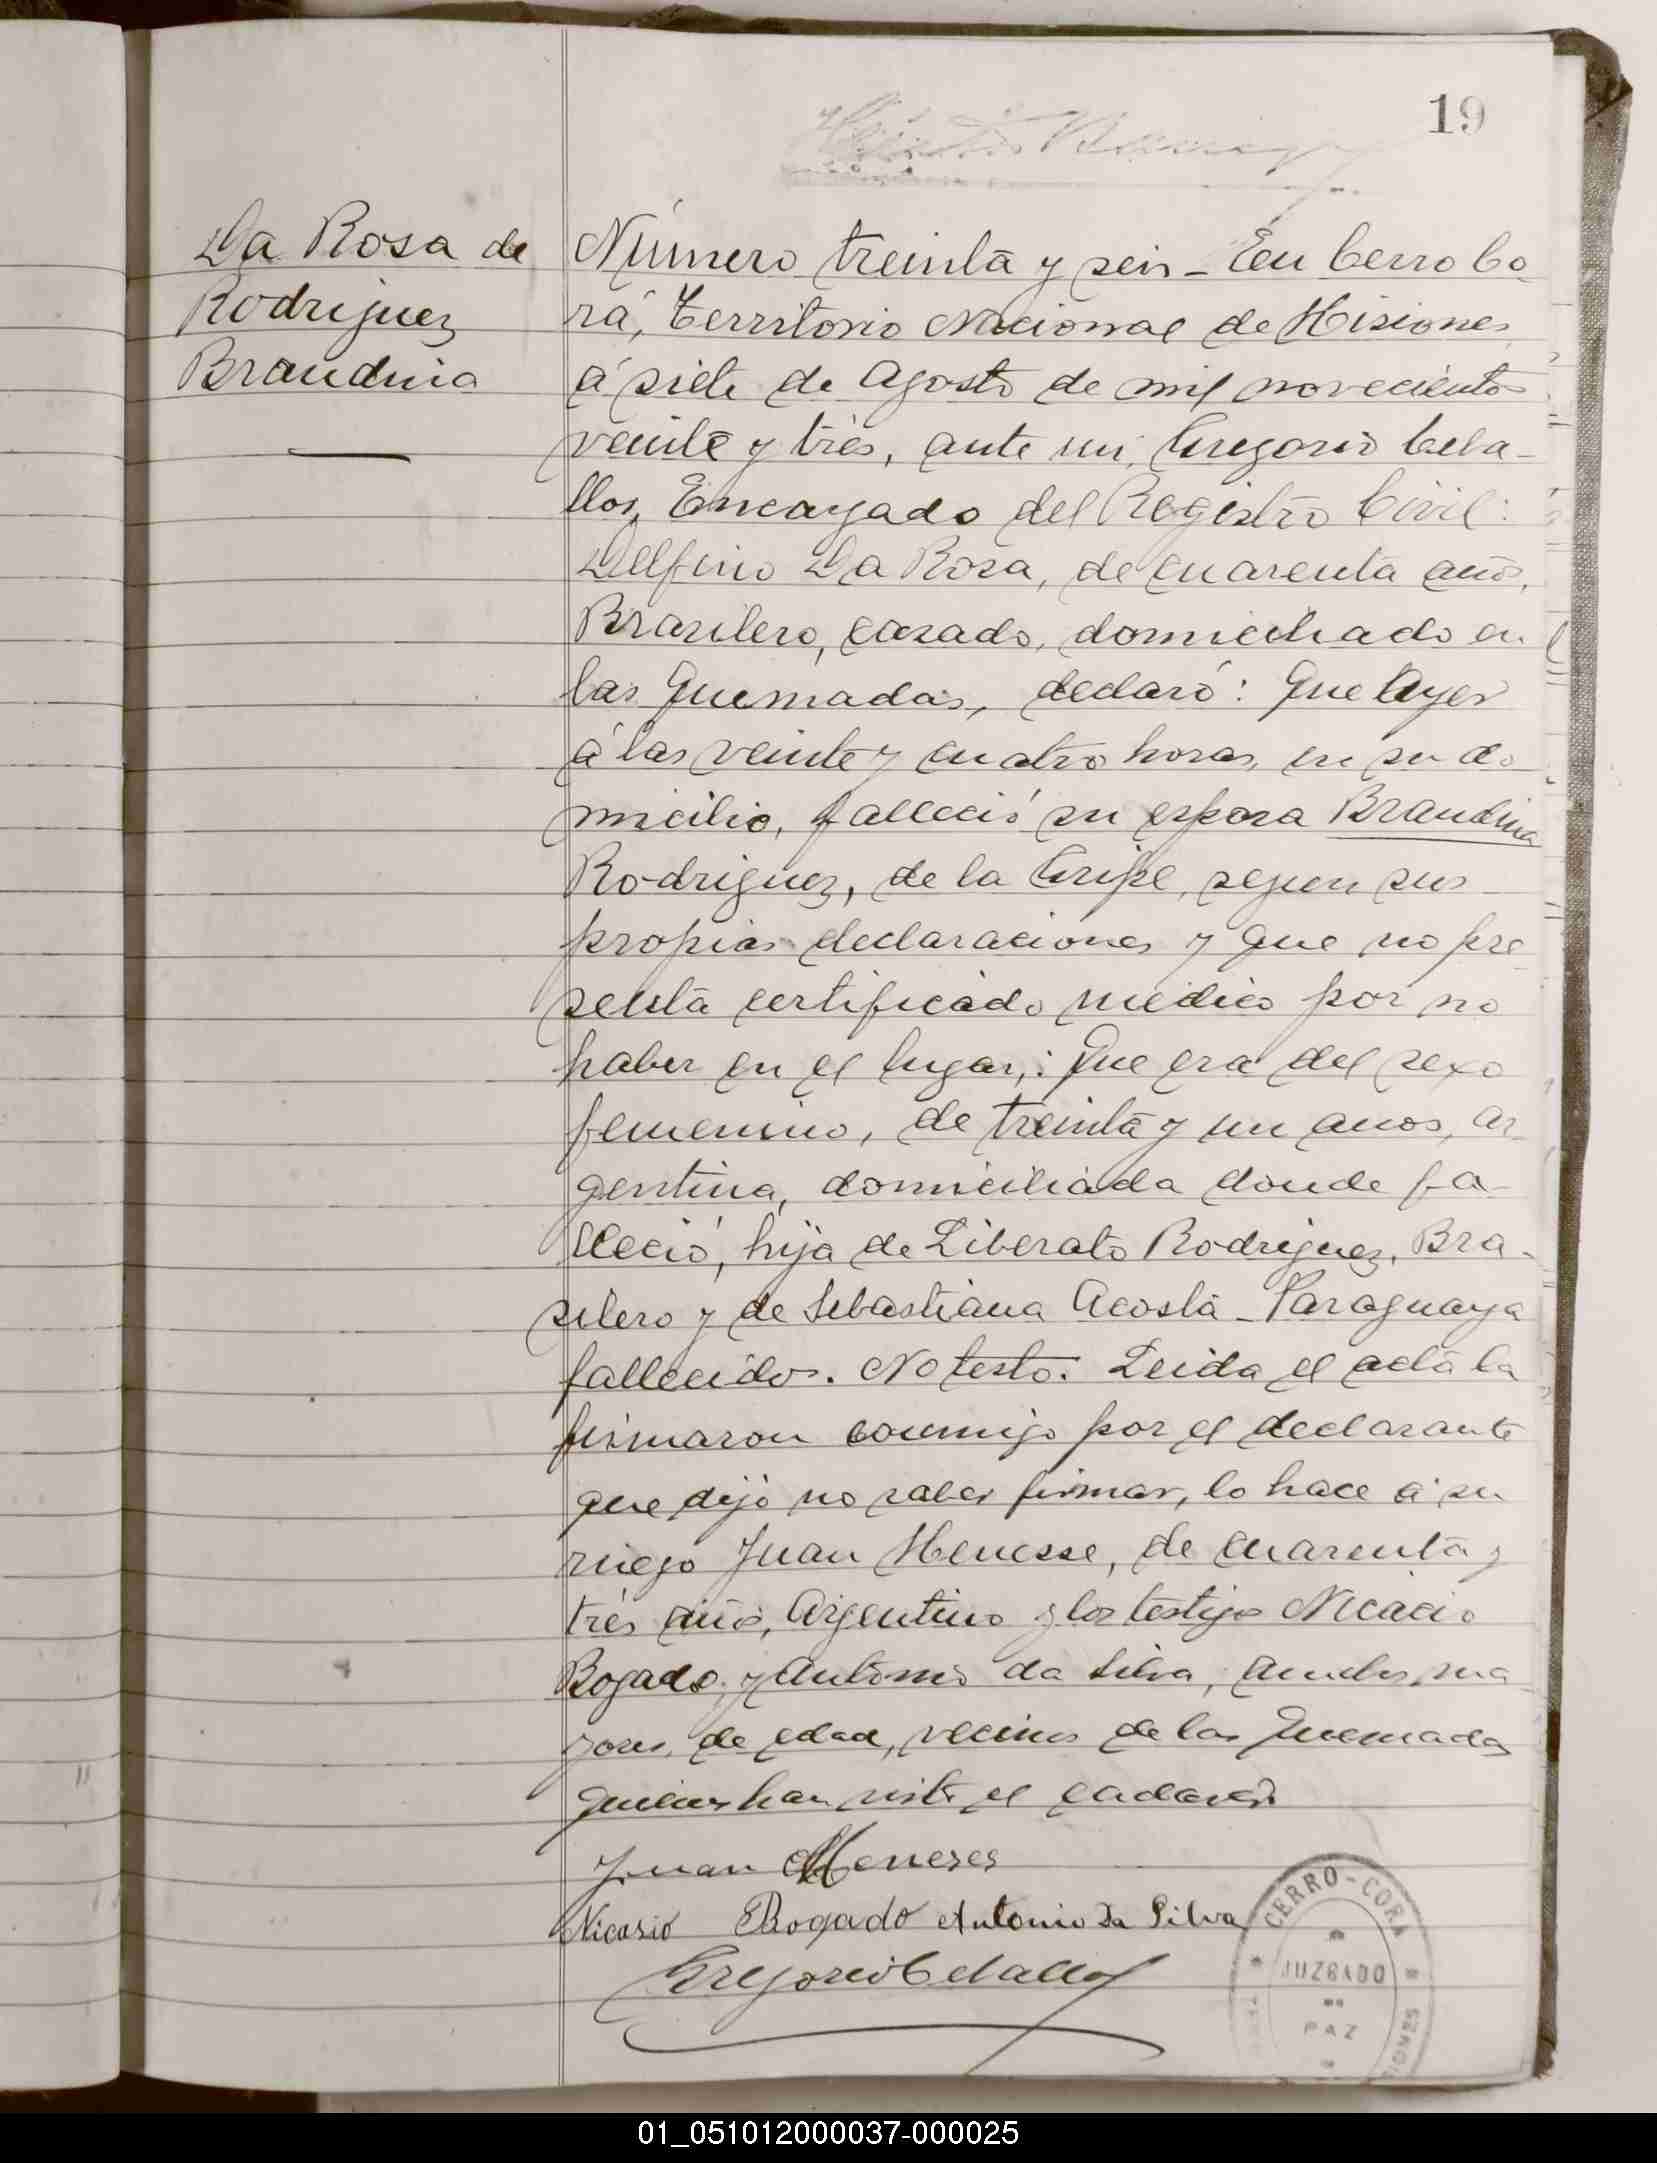 19
Da Rosa de
Rodriguez
Braudina
Número treinta y seis - En Cerro Co
rá, Territorio Nacional de Misiones
á siete de Agosto de mil novecientos
veinte y trés, ante mi, Gregorio Ceba-
llos, Encargado del Registro Civil:
Delfino Da Rosa, de cuarenta años,
Brasilero, casado, domiciliado en
las Quemadas, declaró: Que Ayer
á las veinte y cuatro horas, en su do
micilio, falleció su esposa Braudina
Rodriguez, de la Gripe, segun sus
propias declaraciones y que no pre
senta certificado medico por no
haber en el lugar,: Que era del sexo
femenino, de treinta y un anos, ar
gentina, domiciliada donde fa-
lleció, hija de Liberato Rodriguez, Bra-
silero y de Sebastiana Acosta - Paraguaya
fallecidos. No testó. Leida el acta la
firmaron conmigo por el declarante
que dijo no saber firmar, lo hace á su
ruego Juan Menesse, de cuarenta y
trés años, Argentino y los testigos Nicacio
Bogado, y Antonio da Silva, ambos, ma
yores, de edad, vecinos de las Quemadas
quienes han visto el cadaver
Juan Meneses
Nicasio Bogado Antonio Da Silva
Gregorio Ceballos
CERRO-CORA
JUZGADO
DE
PAZ
01_051012000037-000025